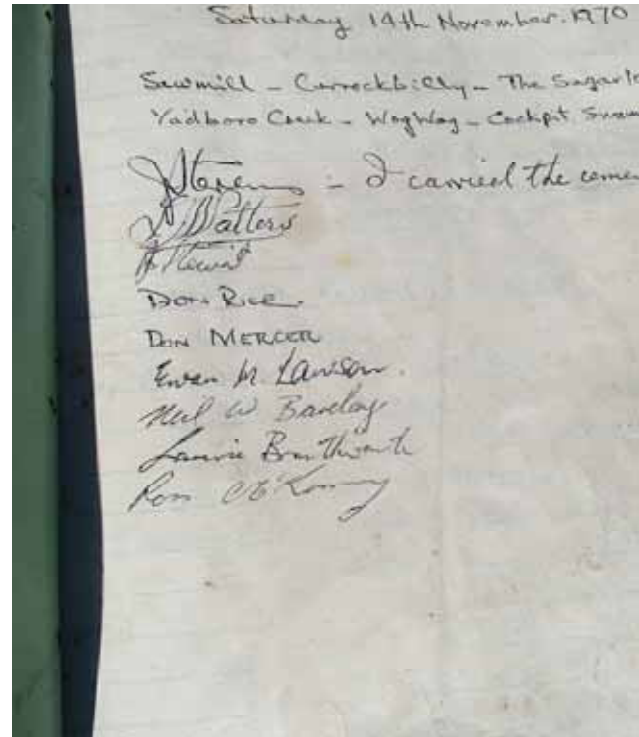 Saturday 14th November. 1970
Sawmill - Currockbilly - The Sugarlo
Yadboro Creek - WogWog - Cockpit Swam
J Stevens - I carried the cemen
Watters
Don Rice.
DON MERCER
Ewan M Lawson.
Neil W Barclay
Laurie Braithwaite
Ross